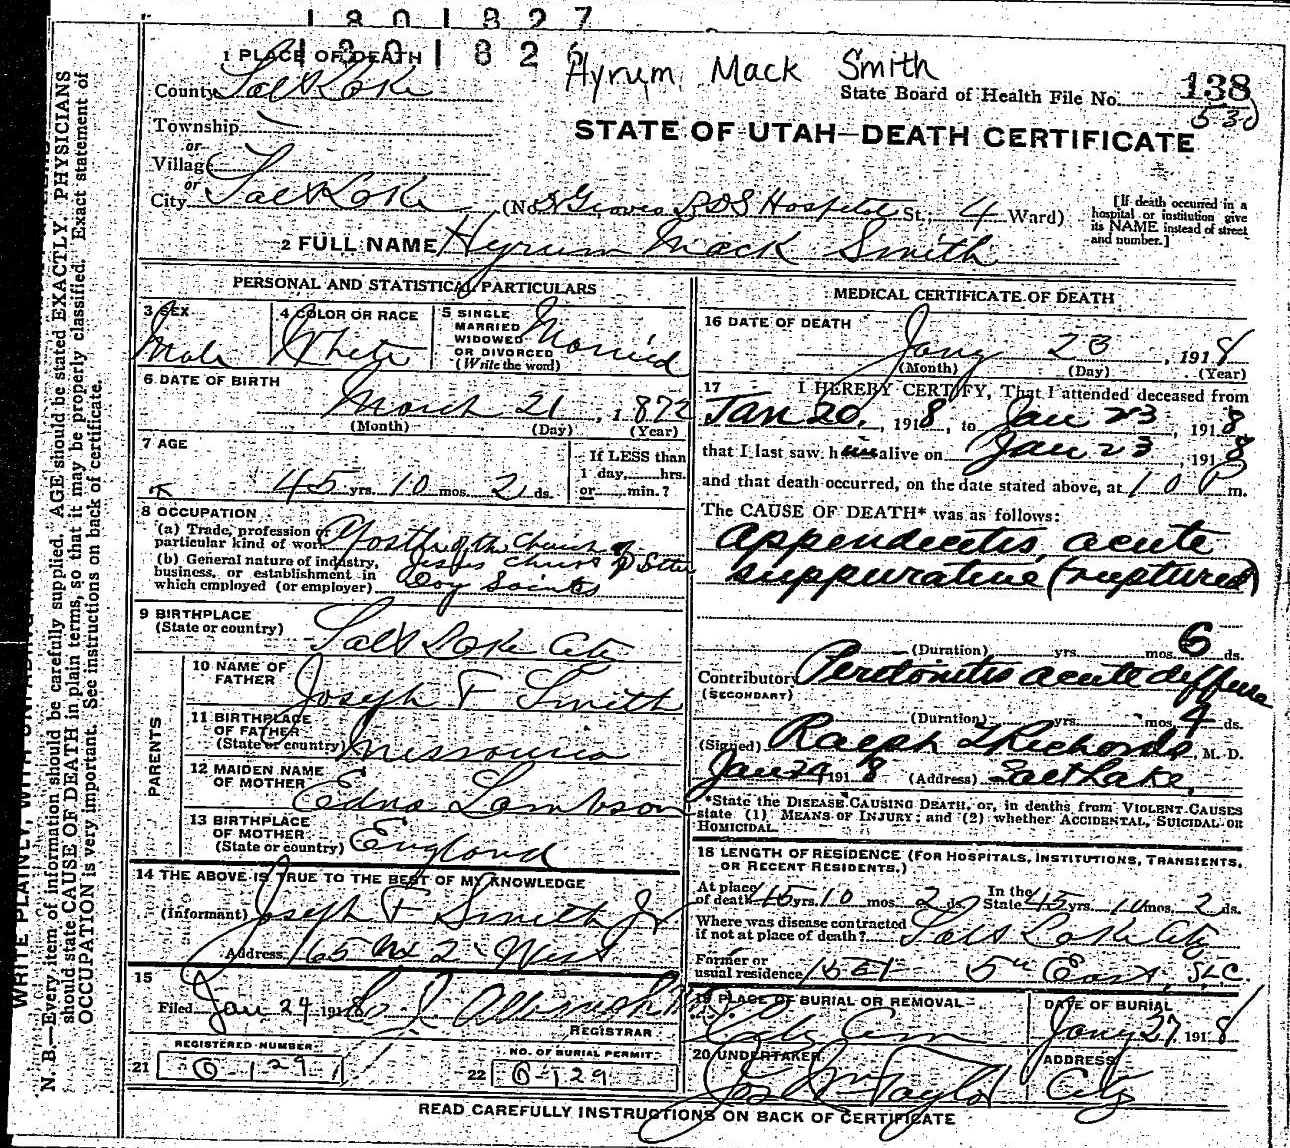 1801827
1801826
1 PLACE OF DEATH
Hyrum Mack Smith
138
County Salt Lake
State Board of Health File No.
530
Township
STATE OF UTAH—DEATH CERTIFICATE
or
Village
or
City Salt Lake (No. Groves LDS Hospital St.; 4 Ward)
[If death occurred in a
hospital or institution give
its NAME instead of street
and number.]
2 FULL NAME Hyrum Mack Smith
PERSONAL AND STATISTICAL PARTICULARS
3 SEX
Male
4 COLOR OR RACE
White
5 SINGLE
MARRIED
WIDOWED
OR DIVORCED
(Write the word)
Married
6 DATE OF BIRTH
March 21, 1872
(Month) (Day) (Year)
7 AGE
45 yrs. 10 mos. 2 ds.
If LESS than
1 day, hrs.
or min.?
8 OCCUPATION
(a) Trade, profession or
particular kind of work
(b) General nature of industry,
business, or establishment in
which employed (or employer)
Apostle of the Church of
Jesus Christ of Latter
Day Saints
9 BIRTHPLACE
(State or country)
Salt Lake City
PARENTS
10 NAME OF
FATHER
Joseph F Smith
11 BIRTHPLACE
OF FATHER
(State or country)
Missouri
12 MAIDEN NAME
OF MOTHER
Edna Lambson
13 BIRTHPLACE
OF MOTHER
(State or country)
England
14 THE ABOVE IS TRUE TO THE BEST OF MY KNOWLEDGE
(Informant) Joseph F Smith Jr
Address 165 No 2 West
15
Filed Jan 24 1918
REGISTRAR
REGISTERED NUMBER
21 0-129
NO. OF BURIAL PERMIT
22 0-129
MEDICAL CERTIFICATE OF DEATH
16 DATE OF DEATH
Jany 23, 1918
(Month) (Day) (Year)
17 I HEREBY CERTIFY, That I attended deceased from
Jan 20, 1918, to Jan 23, 1918
that I last saw him alive on Jan 23, 1918
and that death occurred, on the date stated above, at 10 P m.
The CAUSE OF DEATH* was as follows:
Appendicitis, acute
suppurative (ruptured)
(Duration) yrs. mos. 6 ds.
Contributory Peritonitis acute diffuse
(SECONDARY)
(Duration) yrs. mos. 4 ds.
(Signed) Ralph T Richards, M. D.
Jan 24 1918 (Address) Salt Lake.
*State the DISEASE CAUSING DEATH, or, in deaths from VIOLENT CAUSES
state (1) MEANS OF INJURY; and (2) whether ACCIDENTAL, SUICIDAL OR
HOMICIDAL.
18 LENGTH OF RESIDENCE (FOR HOSPITALS, INSTITUTIONS, TRANSIENTS,
OR RECENT RESIDENTS.)
At place
of death 45 yrs. 10 mos. 2 ds. In the
State 45 yrs. 10 mos. 2 ds.
Where was disease contracted
if not at place of death? Salt Lake City
Former or
usual residence 155 5th East, S.L.C.
19 PLACE OF BURIAL OR REMOVAL
City Cem
DATE OF BURIAL
Jany 27, 1918
20 UNDERTAKER
Jos Wm Taylor
ADDRESS
City
READ CAREFULLY INSTRUCTIONS ON BACK OF CERTIFICATE
WRITE PLAINLY, WITH UNFADING
N. B.—Every item of information should be carefully supplied. AGE should be stated EXACTLY. PHYSICIANS
should state CAUSE OF DEATH in plain terms, so that it may be properly classified. Exact statement of
OCCUPATION is very important. See instructions on back of certificate.